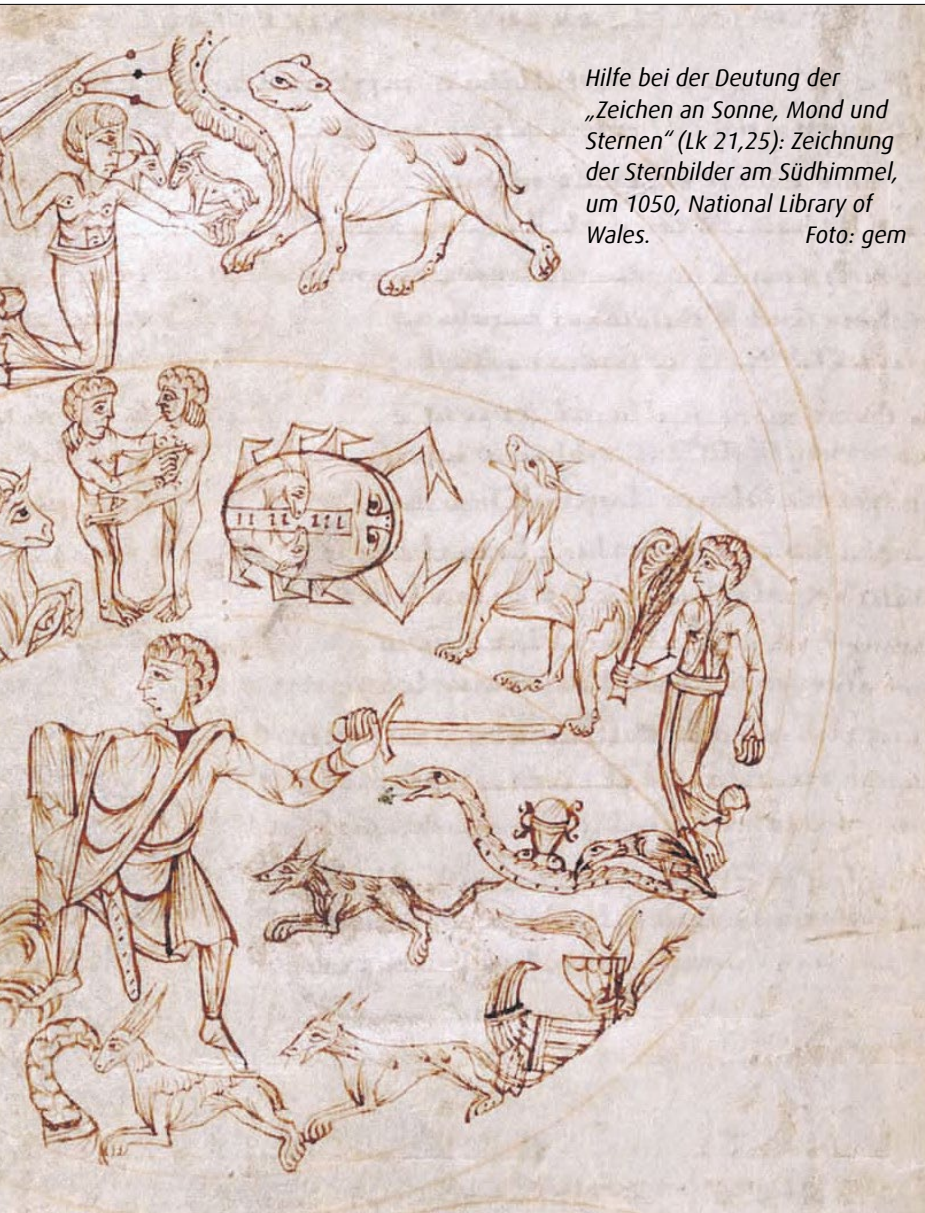 Hilfe bei der Deutung der
„Zeichen an Sonne, Mond und
Sternen“ (Lk 21,25): Zeichnung
der Sternbilder am Südhimmel,
um 1050, National Library of
Wales. Foto: gem